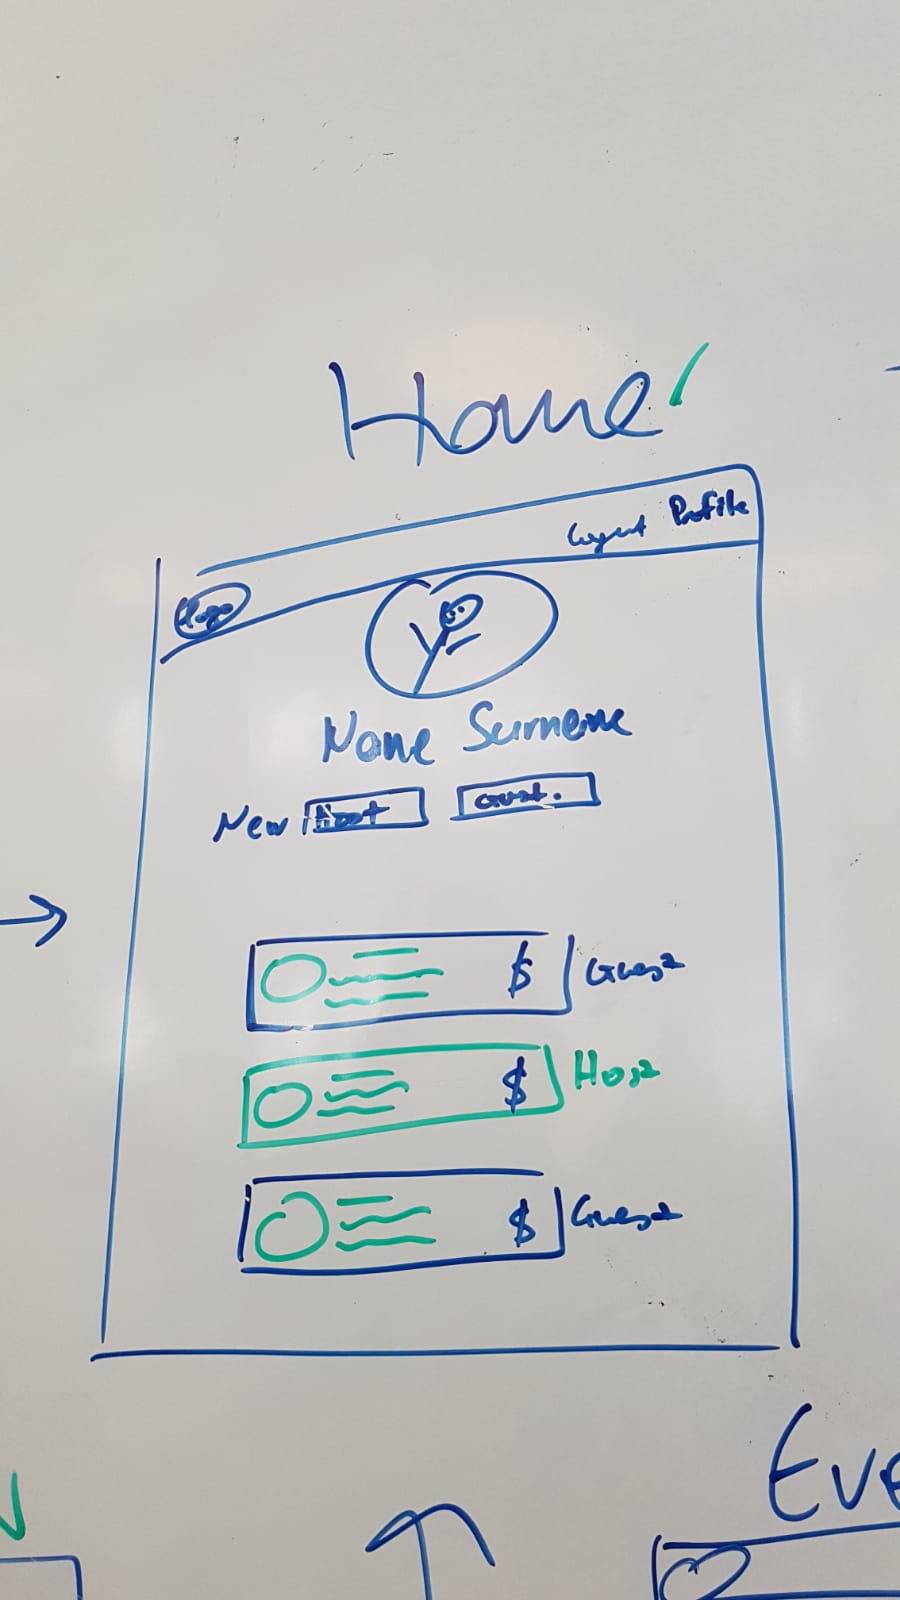 Home
Logout Profile
Logo
Name Surname
New Host Guest.
$ Guest
$ Host
$ Guest
Eve